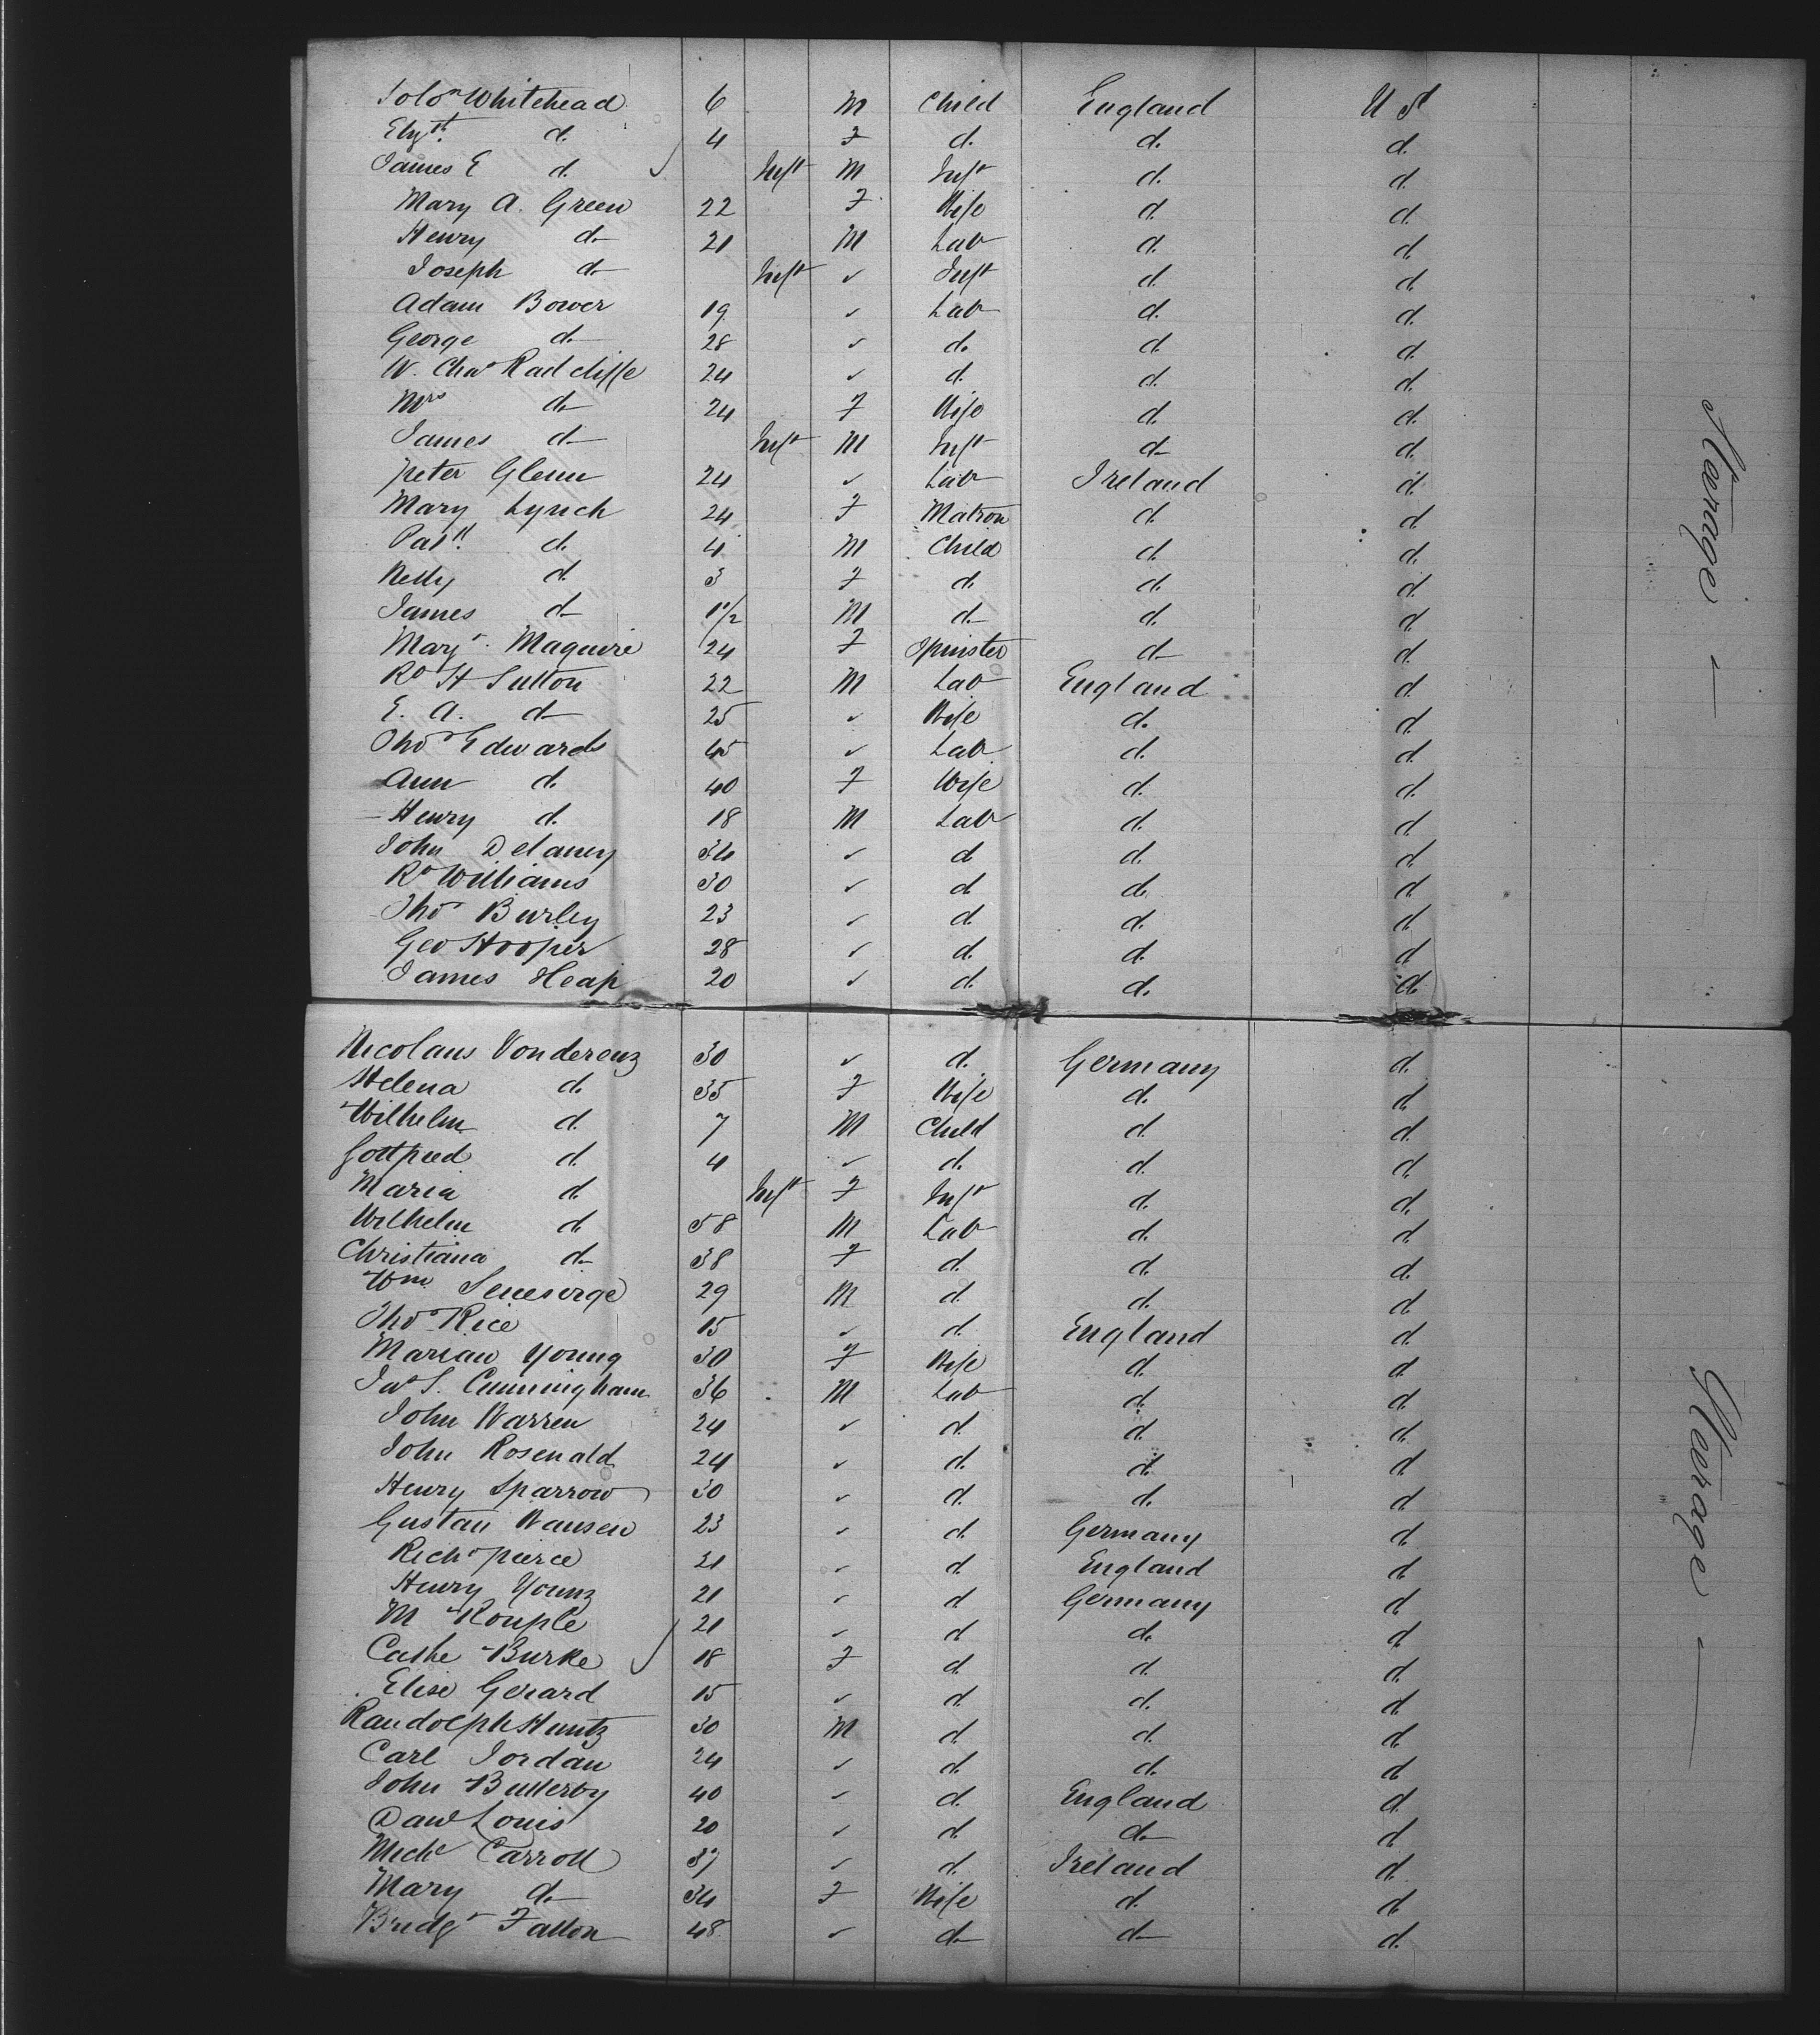 Solon Whitehead 6 M Child England U St
Elizth d. 4 F d. d. d.
James E d. Inft M Inft d. d.
Mary A. Green 22 F Wife d. d.
Henry d. 21 M Lab d. d.
Joseph d. Inft ✓ Inft d. d.
Adam Bower 19 ✓ Lab d. d.
George d. 28 ✓ d. d. d.
W. Chas Radcliffe 24 ✓ d. d. d.
Mrs d. 24 F Wife d. d.
James d. Inft M Inft d. d.
Peter Glenn 24 ✓ Lab Ireland d.
Mary Lynch 24 F Matron d. d.
Patk d. 4 M Child d. d.
Nelly d. 3 F d. d. d.
James d. 1 1/2 M d. d. d.
Margt Maguire 24 F Spinster d. d.
Ro H Sutton 22 M Lab England d.
E. A. d. 25 ✓ Wife d. d.
Thos Edwards 45 ✓ Lab d. d.
Ann d. 40 F Wife d. d.
Henry d. 18 M Lab d. d.
John Delaney 34 ✓ d. d. d.
Ro Williams 30 ✓ d. d. d.
Thos Burley 23 ✓ d. d. d.
Geo Hooper 28 ✓ d. d. d.
James Heap 20 ✓ d. d. d.
Steerage
Nicolaus Vonderenz 30 ✓ d. Germany d.
Helena d. 35 F Wife d. d.
Wilhelm d. 7 M Child d. d.
Gottfried d. 4 ✓ d. d. d.
Maria d. Inft F Inft d. d.
Wilhelm d. 58 M Lab d. d.
Christiana d. 38 F d. d. d.
Wm 29 M d. d. d.
Thos Rice 15 ✓ d. England d.
Marian Young 30 F Wife d. d.
Jas S. Cunningham 36 M Lab d. d.
John Warren 24 ✓ d. d. d.
John Rosenald 24 ✓ d. d. d.
Henry Sparrow 30 ✓ d. d. d.
Gustau Wansen 23 ✓ d. Germany d.
Richd Pierce 21 ✓ d. England d.
Henry Young 21 ✓ d. Germany d.
M Rouple 21 ✓ d. d. d.
Cathe Burke 18 F d. d. d.
Elise Gerard 15 ✓ d. d. d.
Randolph Huntz 30 M d. d. d.
Carl Jordan 24 ✓ d. d. d.
John Bullerby 40 ✓ d. England d.
Davd Louis 20 ✓ d. d. d.
Michl Carroll 37 ✓ d. Ireland d.
Mary d. 34 F Wife d. d.
Bridgt Fallon 48 ✓ d. d. d.
Steerage